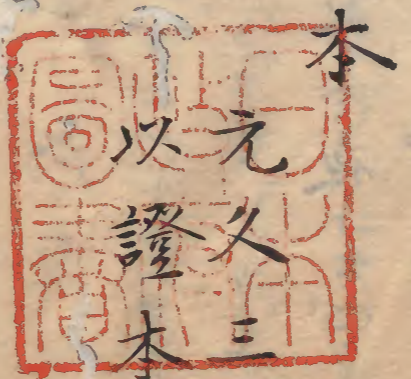 本
元久三
以證本